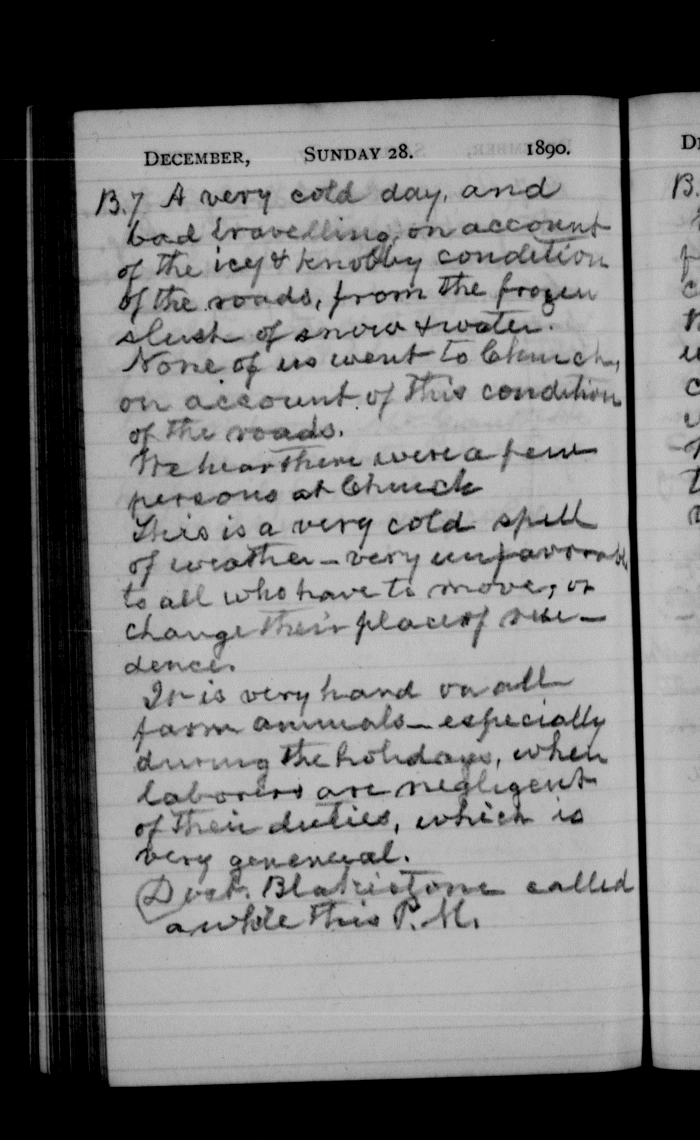 DECEMBER, SUNDAY 28. 1890.
B.7 A very cold day, and
bad travelling, on account
of the icy & knobby condition
of the roads, from the frozen
slush of snow & water.
None of us went to Church,
on account of this condition
of the roads.
We hear there were a few
persons at Church
This is a very cold spell
of weather - very unfavorable
to all who have to move, or
change their place of resi-
dence.
It is very hard on all
farm animals - especially
during the holidays, when
laborers are negligent
of their duties, which is
very genereral.
Doct. Blakistone called
awhile this P.M.